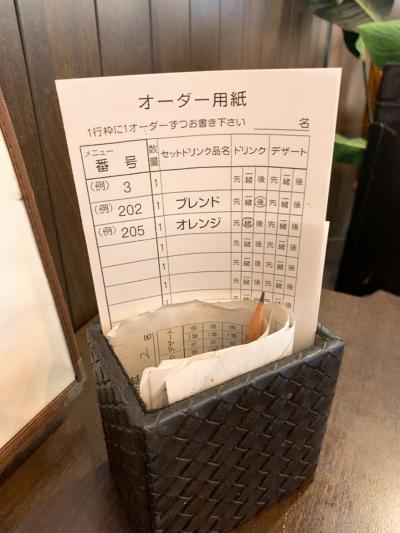 オーダー用紙
1行枠に1オーダーずつお書き下さい　　　　名
メニュー番号 数量 セットドリンク品名 ドリンク デザート
(例) 3 1 先 一緒 後 先 一緒 後
(例) 202 1 ブレンド 先 一緒 後 先 一緒 後
(例) 205 1 オレンジ 先 一緒 後 先 一緒 後
1 先 一緒 後 先 一緒 後
1 先 一緒 後 先 一緒
1 先 一緒 後 先 一緒
1 先 一緒 後 先 一緒